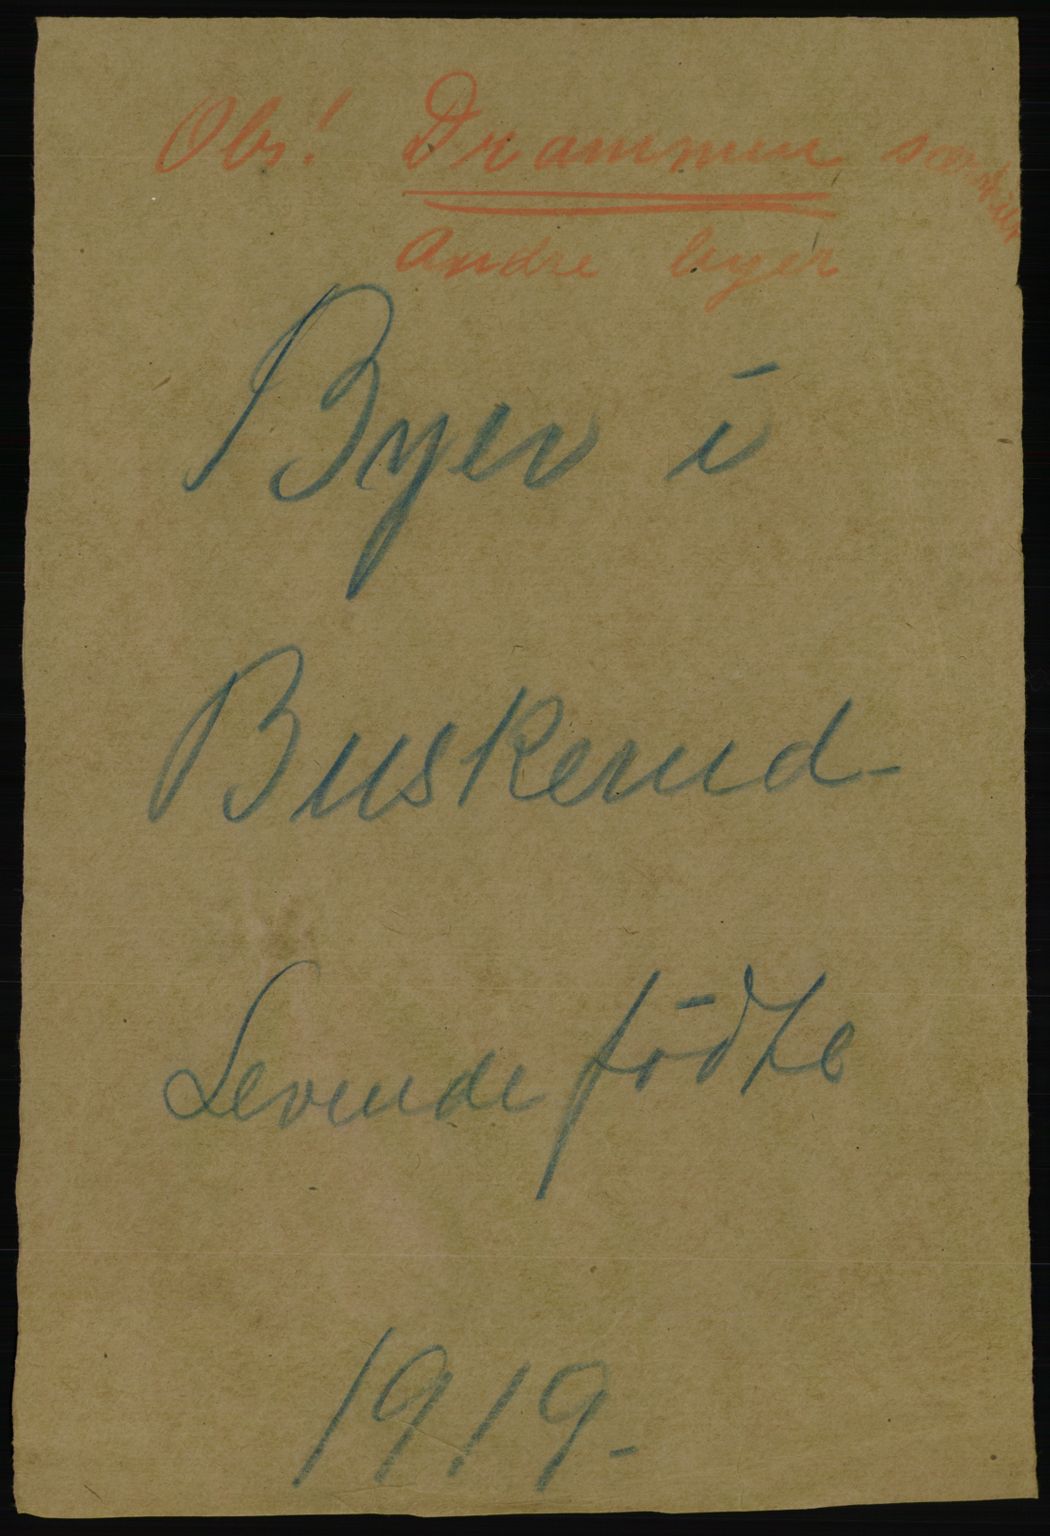 Obs! Drammen særskilt
Andre byer
Byer i
Buskerud-
Levende fødte
1919-